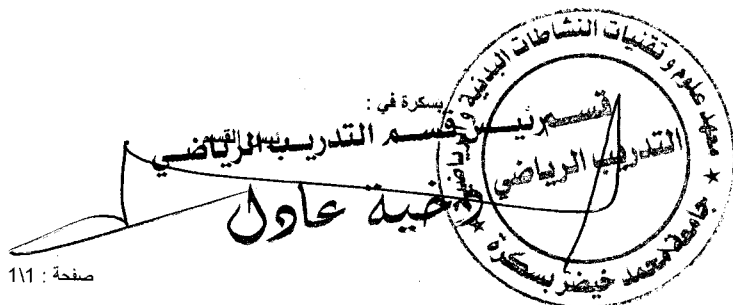 بسكرة في :
رئيس القسم
رئيس قسم التدريب الرياضي
عادل
معهد علوم و تقنيات النشاطات البدنية و الرياضية
قسم
التدريب الرياضي
★ جامعة محمد خيضر بسكرة ★
صفحة : 1\1